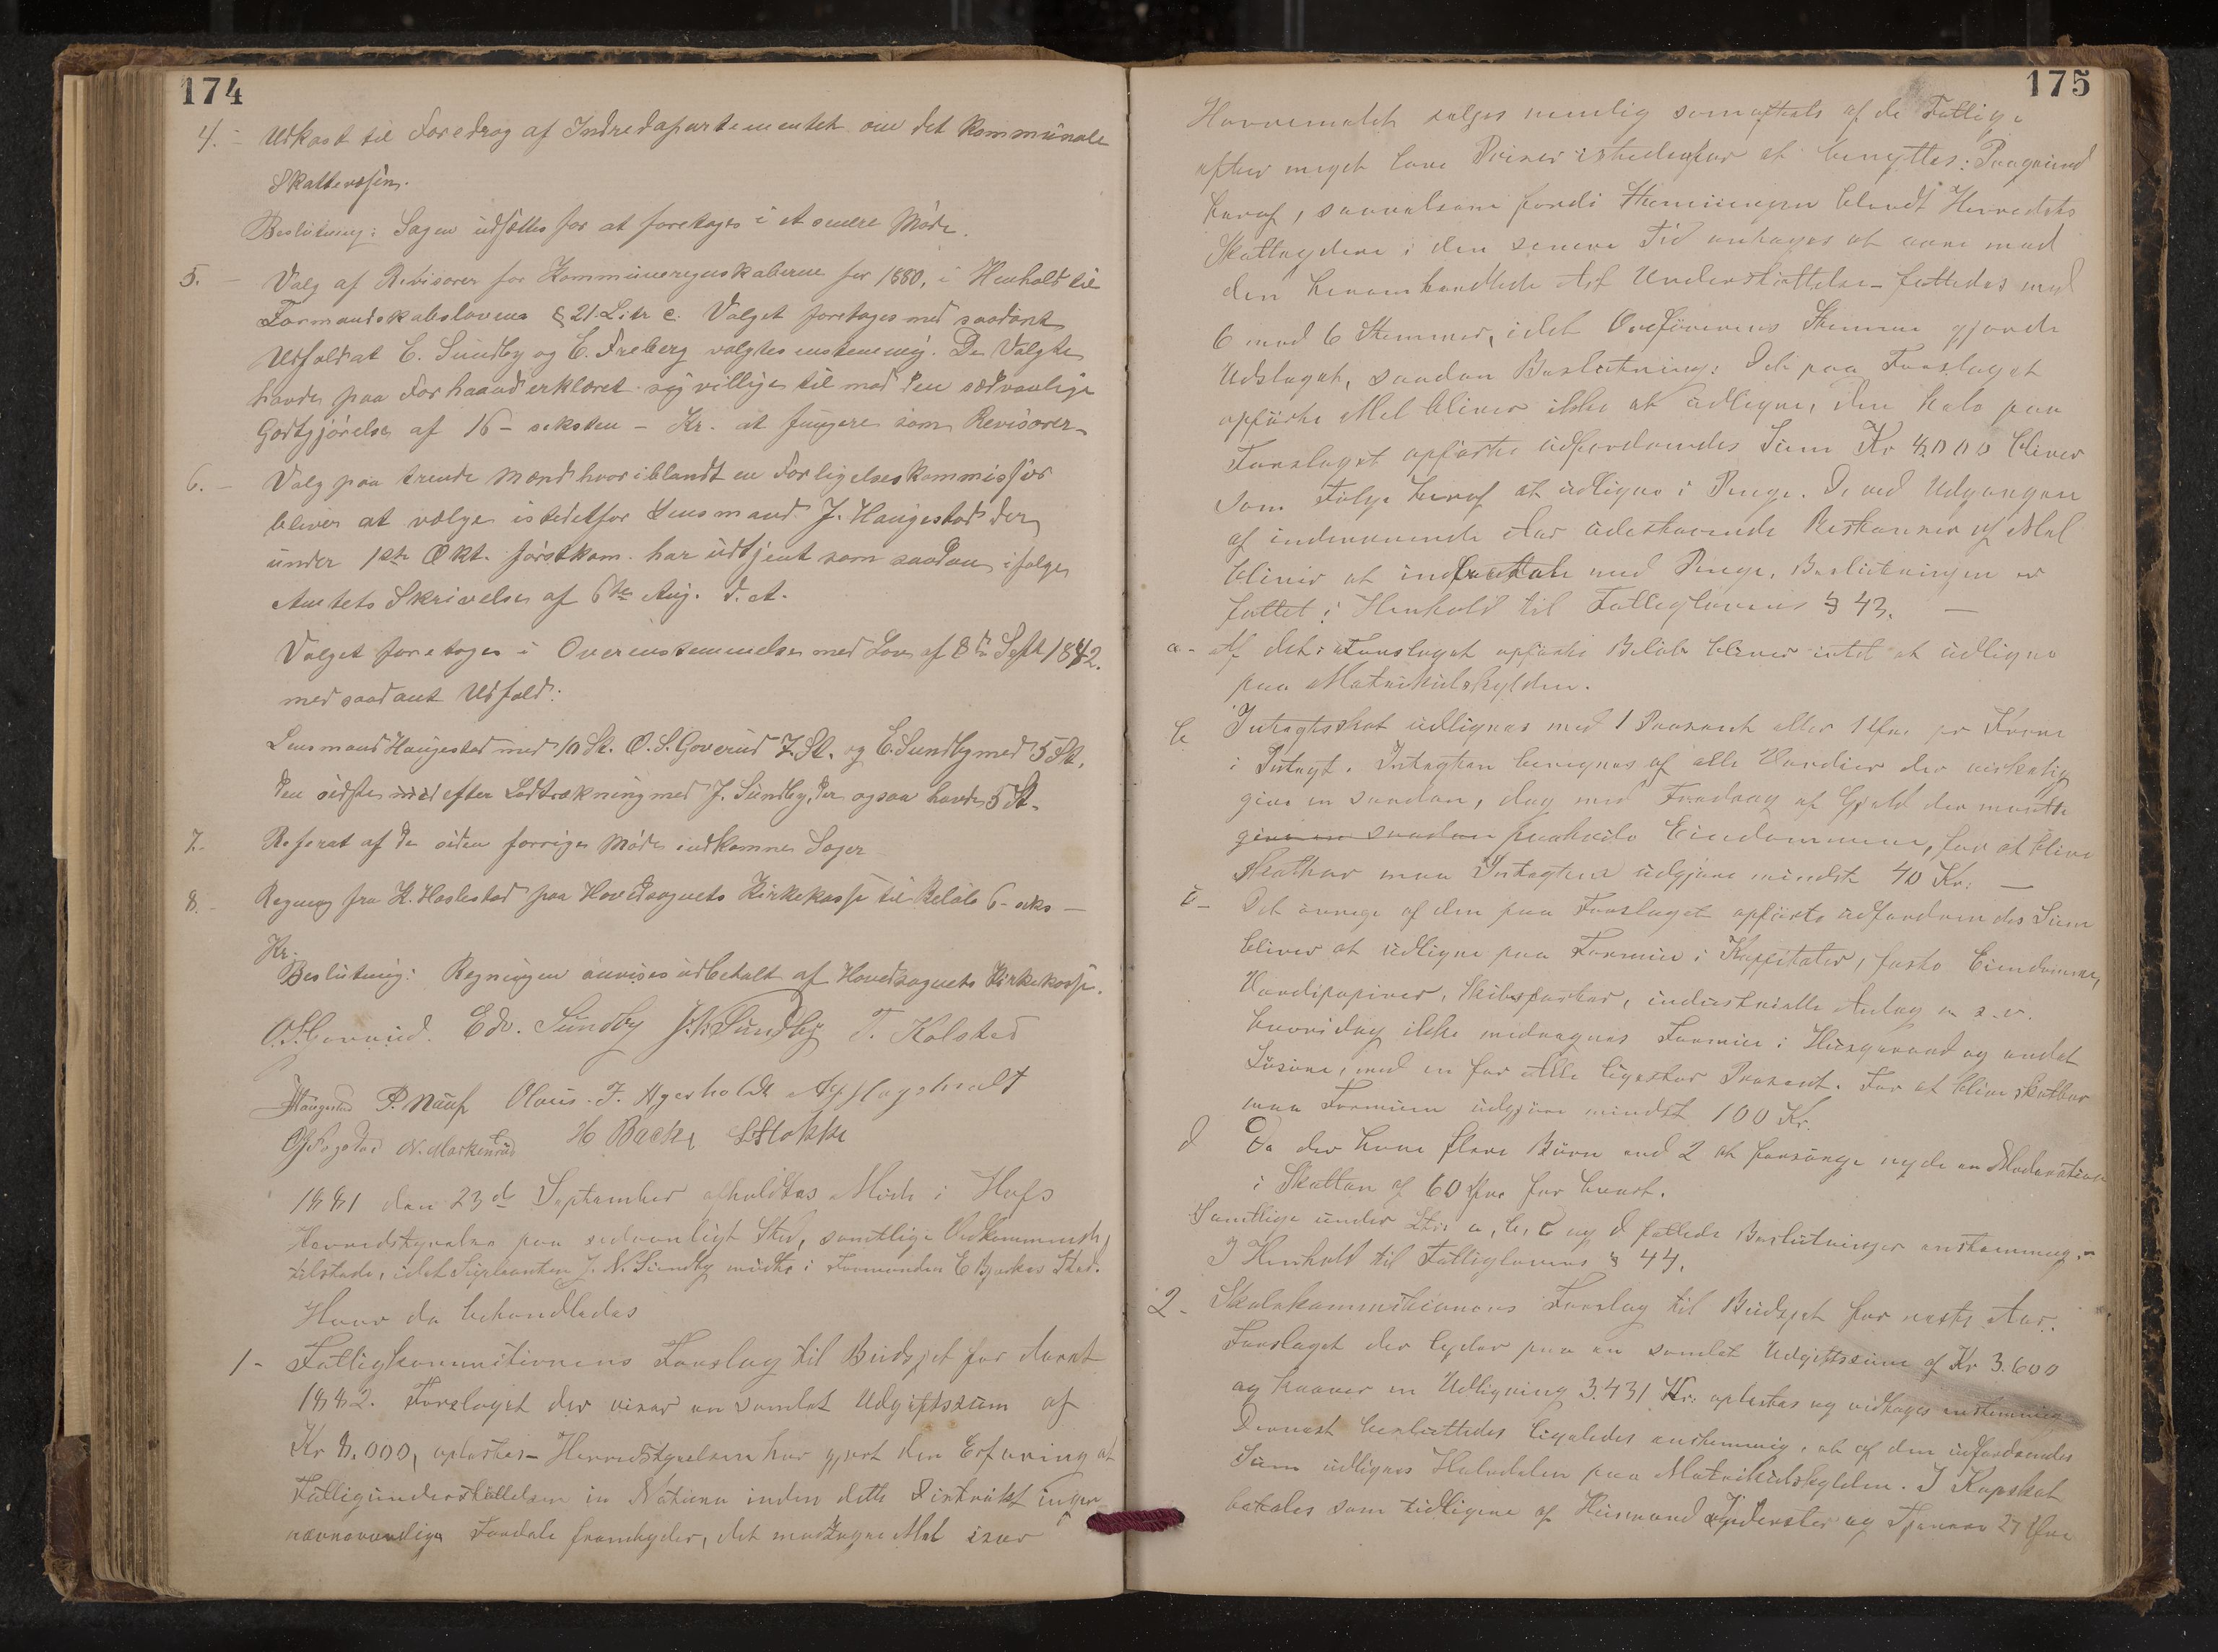 174
4. - Udkast til Foredrag af Indredepartementet om det kommunale
Skattevæsen.
Beslutning: Sagen udsættes for at foretages i et senere Møde.
5. - Valg af Revisorer for Kommuneregnskaberne for 1880, i Henhold til
Formandskabslovens § 21. Litr c. Valget foretages med saadant
Udfald at E. Sundby og E. Freberg valgtes enstemmig. De Valgte
havde paa Forhaand erklæret sig villige til mod den sædvanlige
Godtgjörelse af 16 - seksten - Kr. at fungere som Revisorer.
6. - Valg paa trende Mænd hvoriblandt en Forligelseskommissær
bliver at vælge istedetfor Lensmand J. Haugestad der
under 1ste Okt. førstkom. har udtjent som saadan ifølge
Amtets Skrivelse af 6te Aug. d. A.
Valget foretages i Overensstemmelse med Lov af 8de Sept 1842.
med saadant Udfald:
Lensmand Haugestad med 10 St. O. S. Goverud 7. St. og E. Sundby med 5 St.
den sidste efter Lodtrækning med J. Sundby, der ogsaa havde 5 St.
7. Referat af de siden forrige Møde indkomne Sager
8. - Regning fra K. Haslestad paa Hovedsognets Kirkekasse til Beløb 6 - seks -
Kr.
Beslutning: Regningen anvises udbetalt af Hovedsognets Kirkekasse.
O. S. Goverud. Edv. Sundby J. N. Sundby T. Kolstad
Haugestad P. Nauf Olaus. F. Agerholdt
N. Markerud H Backe
1881 den 23de September afholdtes Møde i Hofs
Herredstyrelse paa sedvanligt Sted, samtlige Vedkommende
tilstede, idet Supleanten J. N. Sundby mødte i Formanden E Bjerkes Sted.
Hvor da behandledes
1 - Fattigkommitionens Forslag til Budsjet for Aaret
1882. Forslaget der viser en samlet Udgiftssum af
Kr 8.000, oplæstes - Herredstyrelsen har gjort den Erfaring at
Fattigunderstøttelsen in Natura inden dette Distrikt ingen
nævneværdige Fordele frembyder, det modtagne Mel især
175
Havremelet sælges nemlig som oftest af de Fattige
efter meget lave Priser istedenfor at benyttes: Paagrund
heraf, saavelsom fordi Stemningen blandt Herredets
Skatteydere i den senere Tid antages at være mod
den heromhandlede Art Understøttelse - fattedes med
6 mod 6 Stemmer, idet Ordførerens Stemme gjorde
Udslaget, saadan Beslutning: Det paa Forslaget
opførte Mel bliver ikke at udligne, den hele paa
Forslaget opførte udfordrendes Sum Kr 4000 bliver
som Følge heraf at udligne i Penge. De ved Udgangen
af indeværende Aar udestaaende Restanser af Mel
bliver at indbetale med Penge. Beslutningen er
fattet i Henhold til Fattiglovens § 43. -
a - Af det i Forslaget opførte Beløb bliver intet at udligne
paa Matrikulskylden.
b Indtægtsskat udlignes med 1 Procent eller 1 Øre pr Krone
i Indtægt. Indtægten beregnes af alle Værdier der virkelig
give en saadan, dog med Fradrag af Gjæld der maatte
give en saadan paahvile Eiendommene, for at blive
skatbar maa Indtægten udgjøre mindst 40 Kr. -
c - Det øvrige af den paa Forslaget opførte udfordrendes Sum
bliver at udligne paa Formue i Kapitaler, faste Eiendomme,
Værdipapirer, Skibsparter, industrielle Anlæg o. s. v.
hvoridog ikke medregnes Formue i Husgeraad og andet
Løsøre, med en for Alle ligestor Procent. For at blive skatbar
maa Formuen udgjøre mindst 100 Kr.
d De der have flere Børn end 2 at forsørge nyde en Moderation
i Skatten af 60 Øre for hvert.
Samtlige under Litr. a, b, c og d fattede Beslutninger enstemmig. -
I Henhold til Fattiglovens § 44.
2 - Skolekommitionens Forslag til Budsjet for næste Aar.
Forslaget der lyder paa en samlet Udgiftssum af Kr 3.600
og kræver en Udligning 3.431 Kr. oplæstes og vedtages enstemmig
Dernæst besluttedes ligeledes enstemmig, at af den udfordrendes
Sum udlignes Halvdelen paa Matrikulskylden. I Kopskat
betales som tidligere af Husmænd Inderster og Tjenere 27 Øre